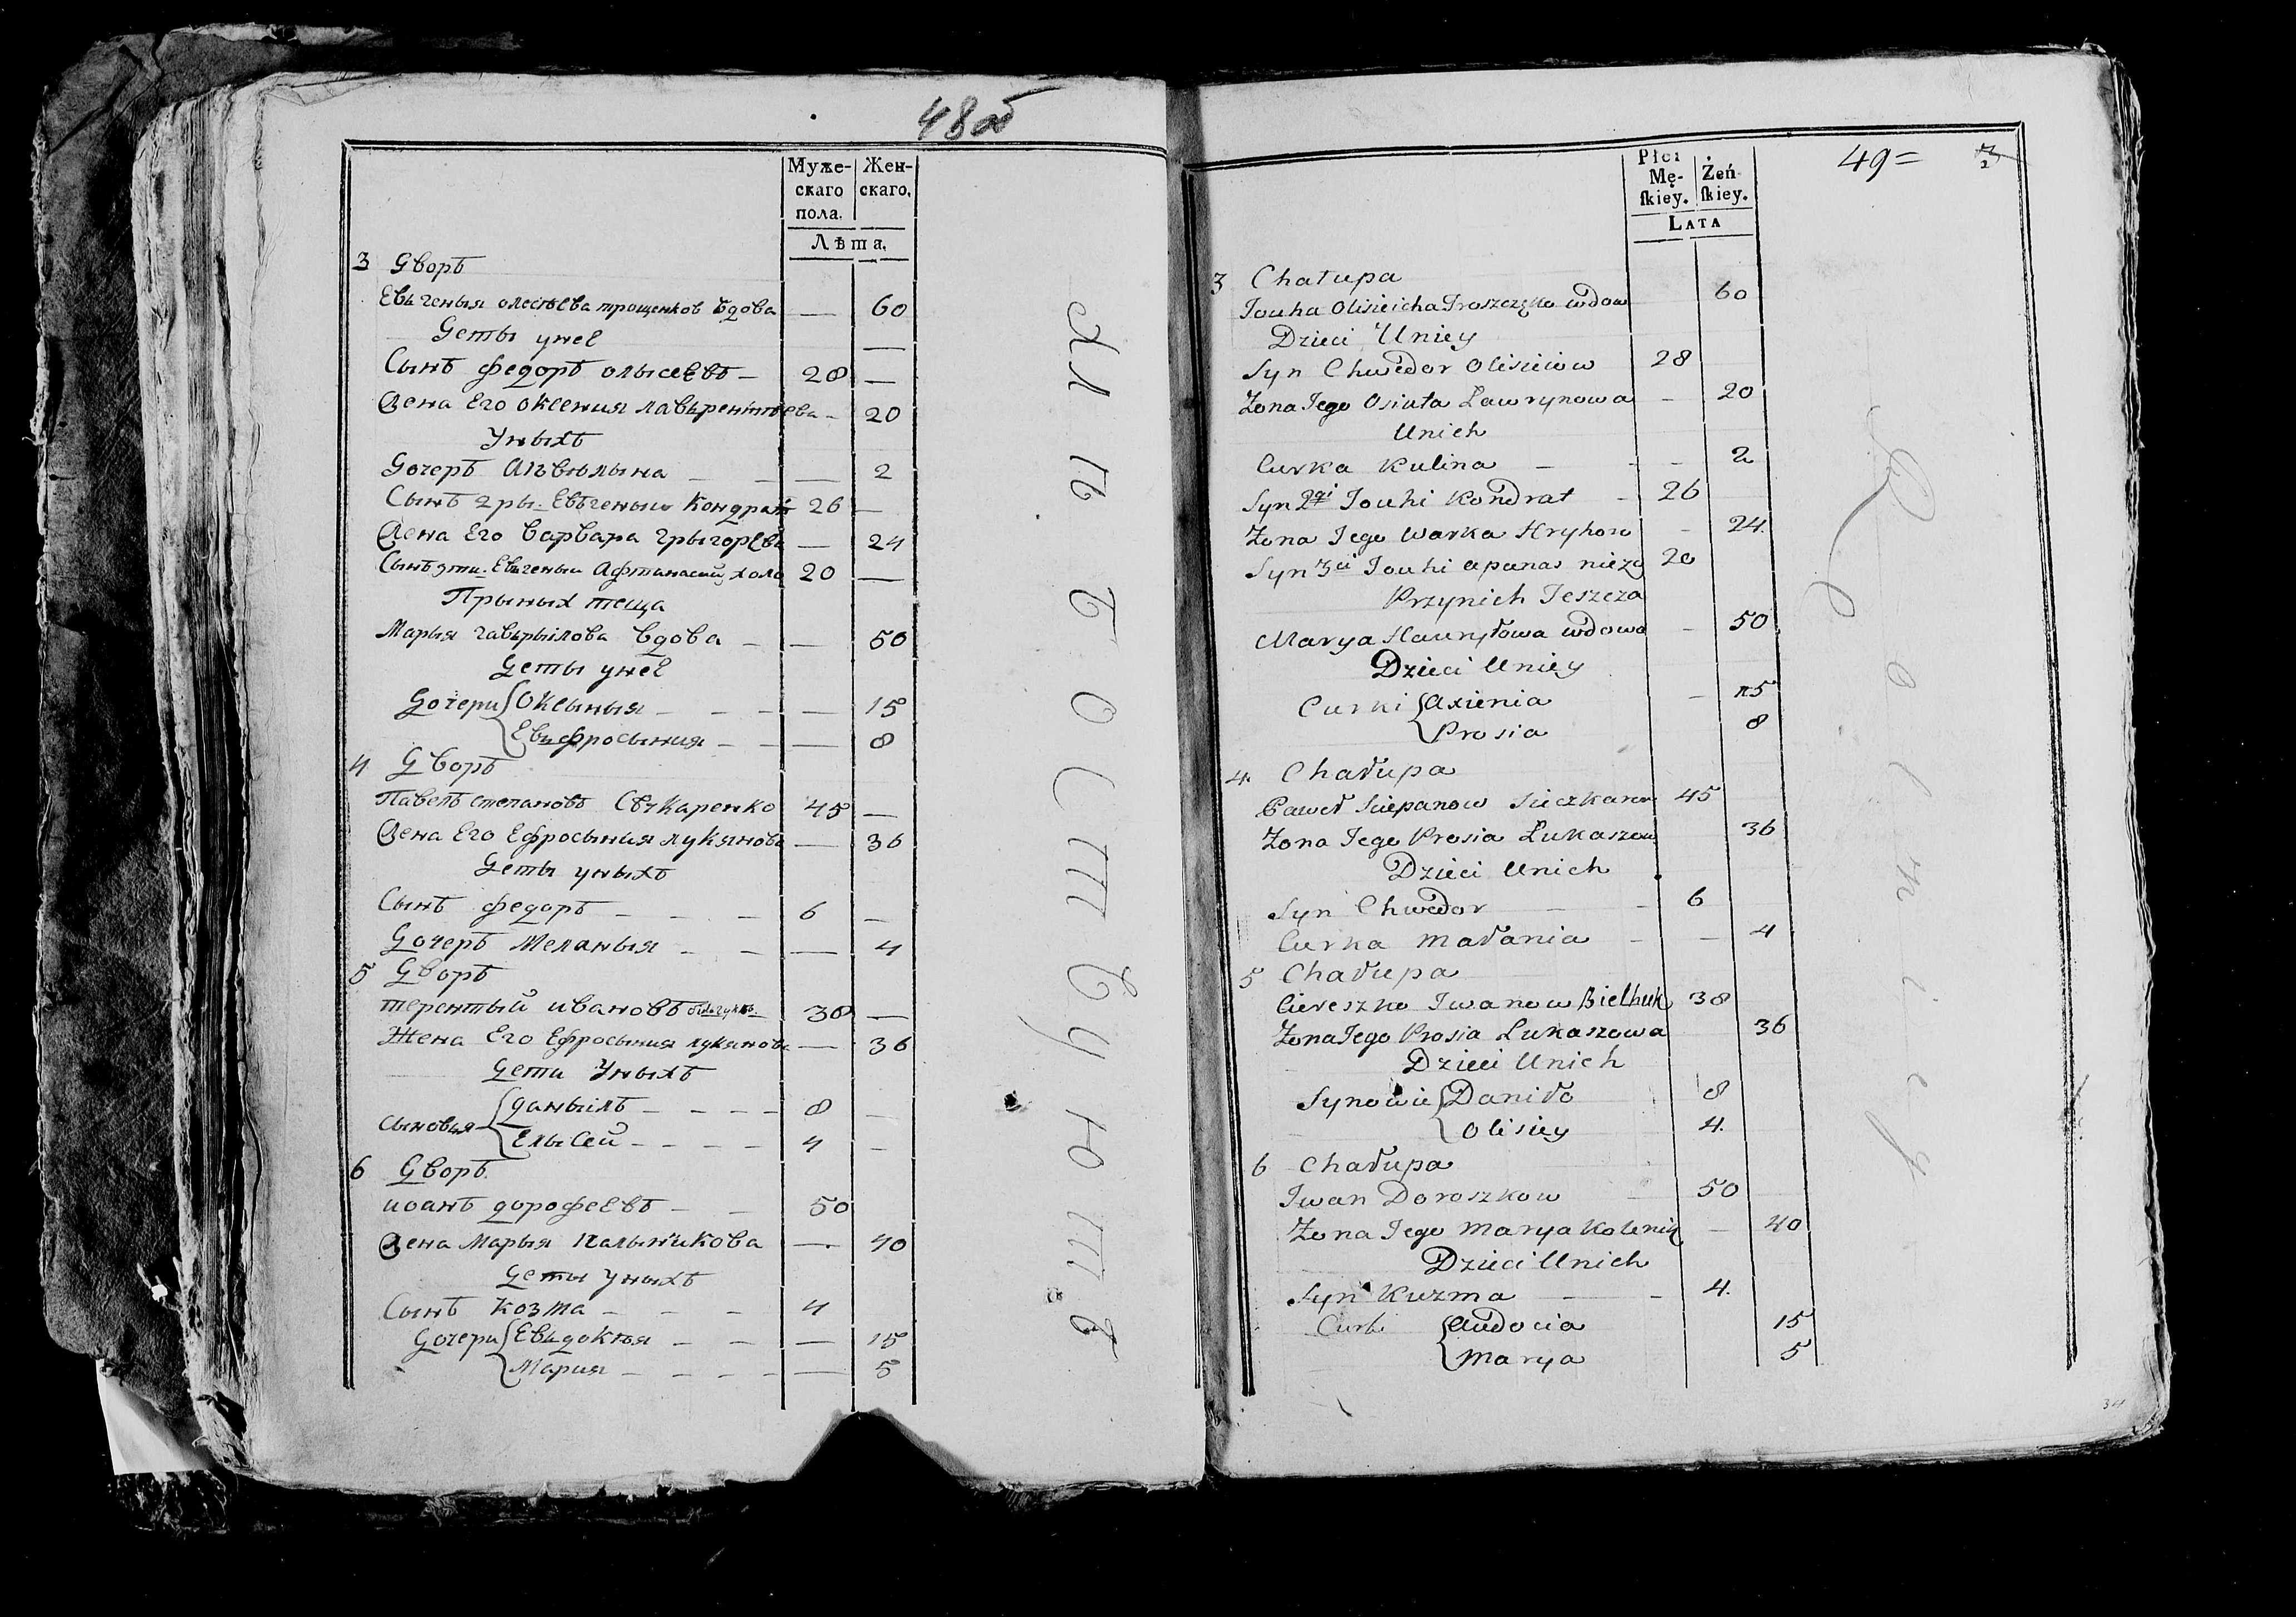 48об
Муже-
скаго
пола.
Жен-
скаго.
Лѣта.
3 Дворъ
Евьгеныя олесѣева трощенков вдова — 60
Деты унеѣ —
Сынъ федоръ олысеевъ — 28 —
Жена Его оксения лавьрентьева — 20
Уныхъ
Дочеръ — — 2
Сынъ 2ры. Евьгеныи Кондрат 26 —
Жена Его варвара грыгорева — 24
Сынъ 3ти. Евьгеныи Афтанасий холо 20 —
Прыных теща
Марыя гаврылова вдова — — 50
Деты унеѣ
Дочери { Оксыныя — — — — 15
Евьфросыния — — — 8
4 Дворъ
Павелъ степановъ Сѣчкаренко 45 —
Жена Его Ефросыния лукянова — 36
Деты уныхъ
Сынъ федоръ — — — 6 —
Дочеръ Меланыя — — — 4
5 Дворъ
терентый ивановъ 38 —
Жена Его Ефросыния лукянова — 36
Дети Уныхъ
Сыновья { данылъ — — — — 8 —
Елысей — — — — 4 —
6 Дворъ.
иоанъ дорофеевъ — — 50
Жена Марыя Калыникова — 40
Деты Уныхъ
Сынъ козма — — — 4
Дочери { Евьдокѣя — — — 15
Мария — — — — — 5
Хлѣбопашествуютъ
49=
Płci
Mę-
skiey.
Żeń-
skiey.
LATA
3 Chałupa
Jouha Olisieicha Troszczęko wdow 60
Dzieci Uniey
Syn Chwedor Olisieiow 28
Zona Jego Osiuta Ławrynowa — 20
Unich
Curka Kulina — — — 2
Syn 2gi Jouhi Kondrat — 26
Zona Jego Warka Hryhoro — 24.
Syn 3ci Jouhi Apanas niezo 20
Przynich Teszcza
Marya Hauryłowa wdowa — 50
Dzieci Uniey
Curki { Axienia — 15
Prosia 8
4. Chałupa
Paweł Sciepanow Sieczkaren 45
Zona Jego Prosia Łukaszow 36
Dzieci Unich
Syn Chwedor — — 6
Curka Małania — — 4
5 Chałupa
Ciereszko Iwanow Bielhuk 38
Zona Jego Prosia Łukaszowa 36
Dzieci Unich
Synowie { Daniło 8
Olisiey 4.
6 Chałupa
Iwan Doroszkow — 50
Zona Jego Marya Kalenik — 40
Dzieci Unich
Syn Kuzma — — 4.
Curki { Audocia 15
Marya 5
Rolniey
34